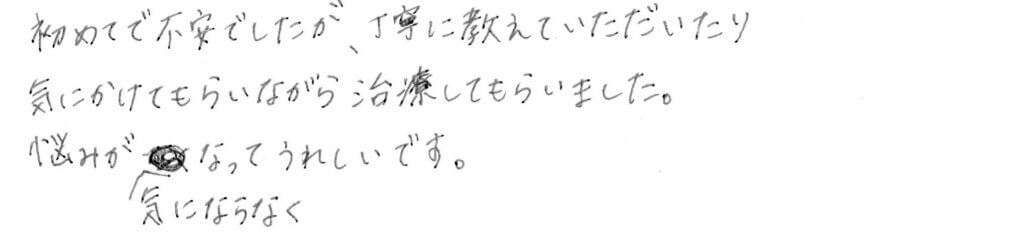 初めてで不安でしたが、丁寧に教えていただいたり
気にかけてもらいながら治療してもらいました。
悩みが気にならなくなってうれしいです。